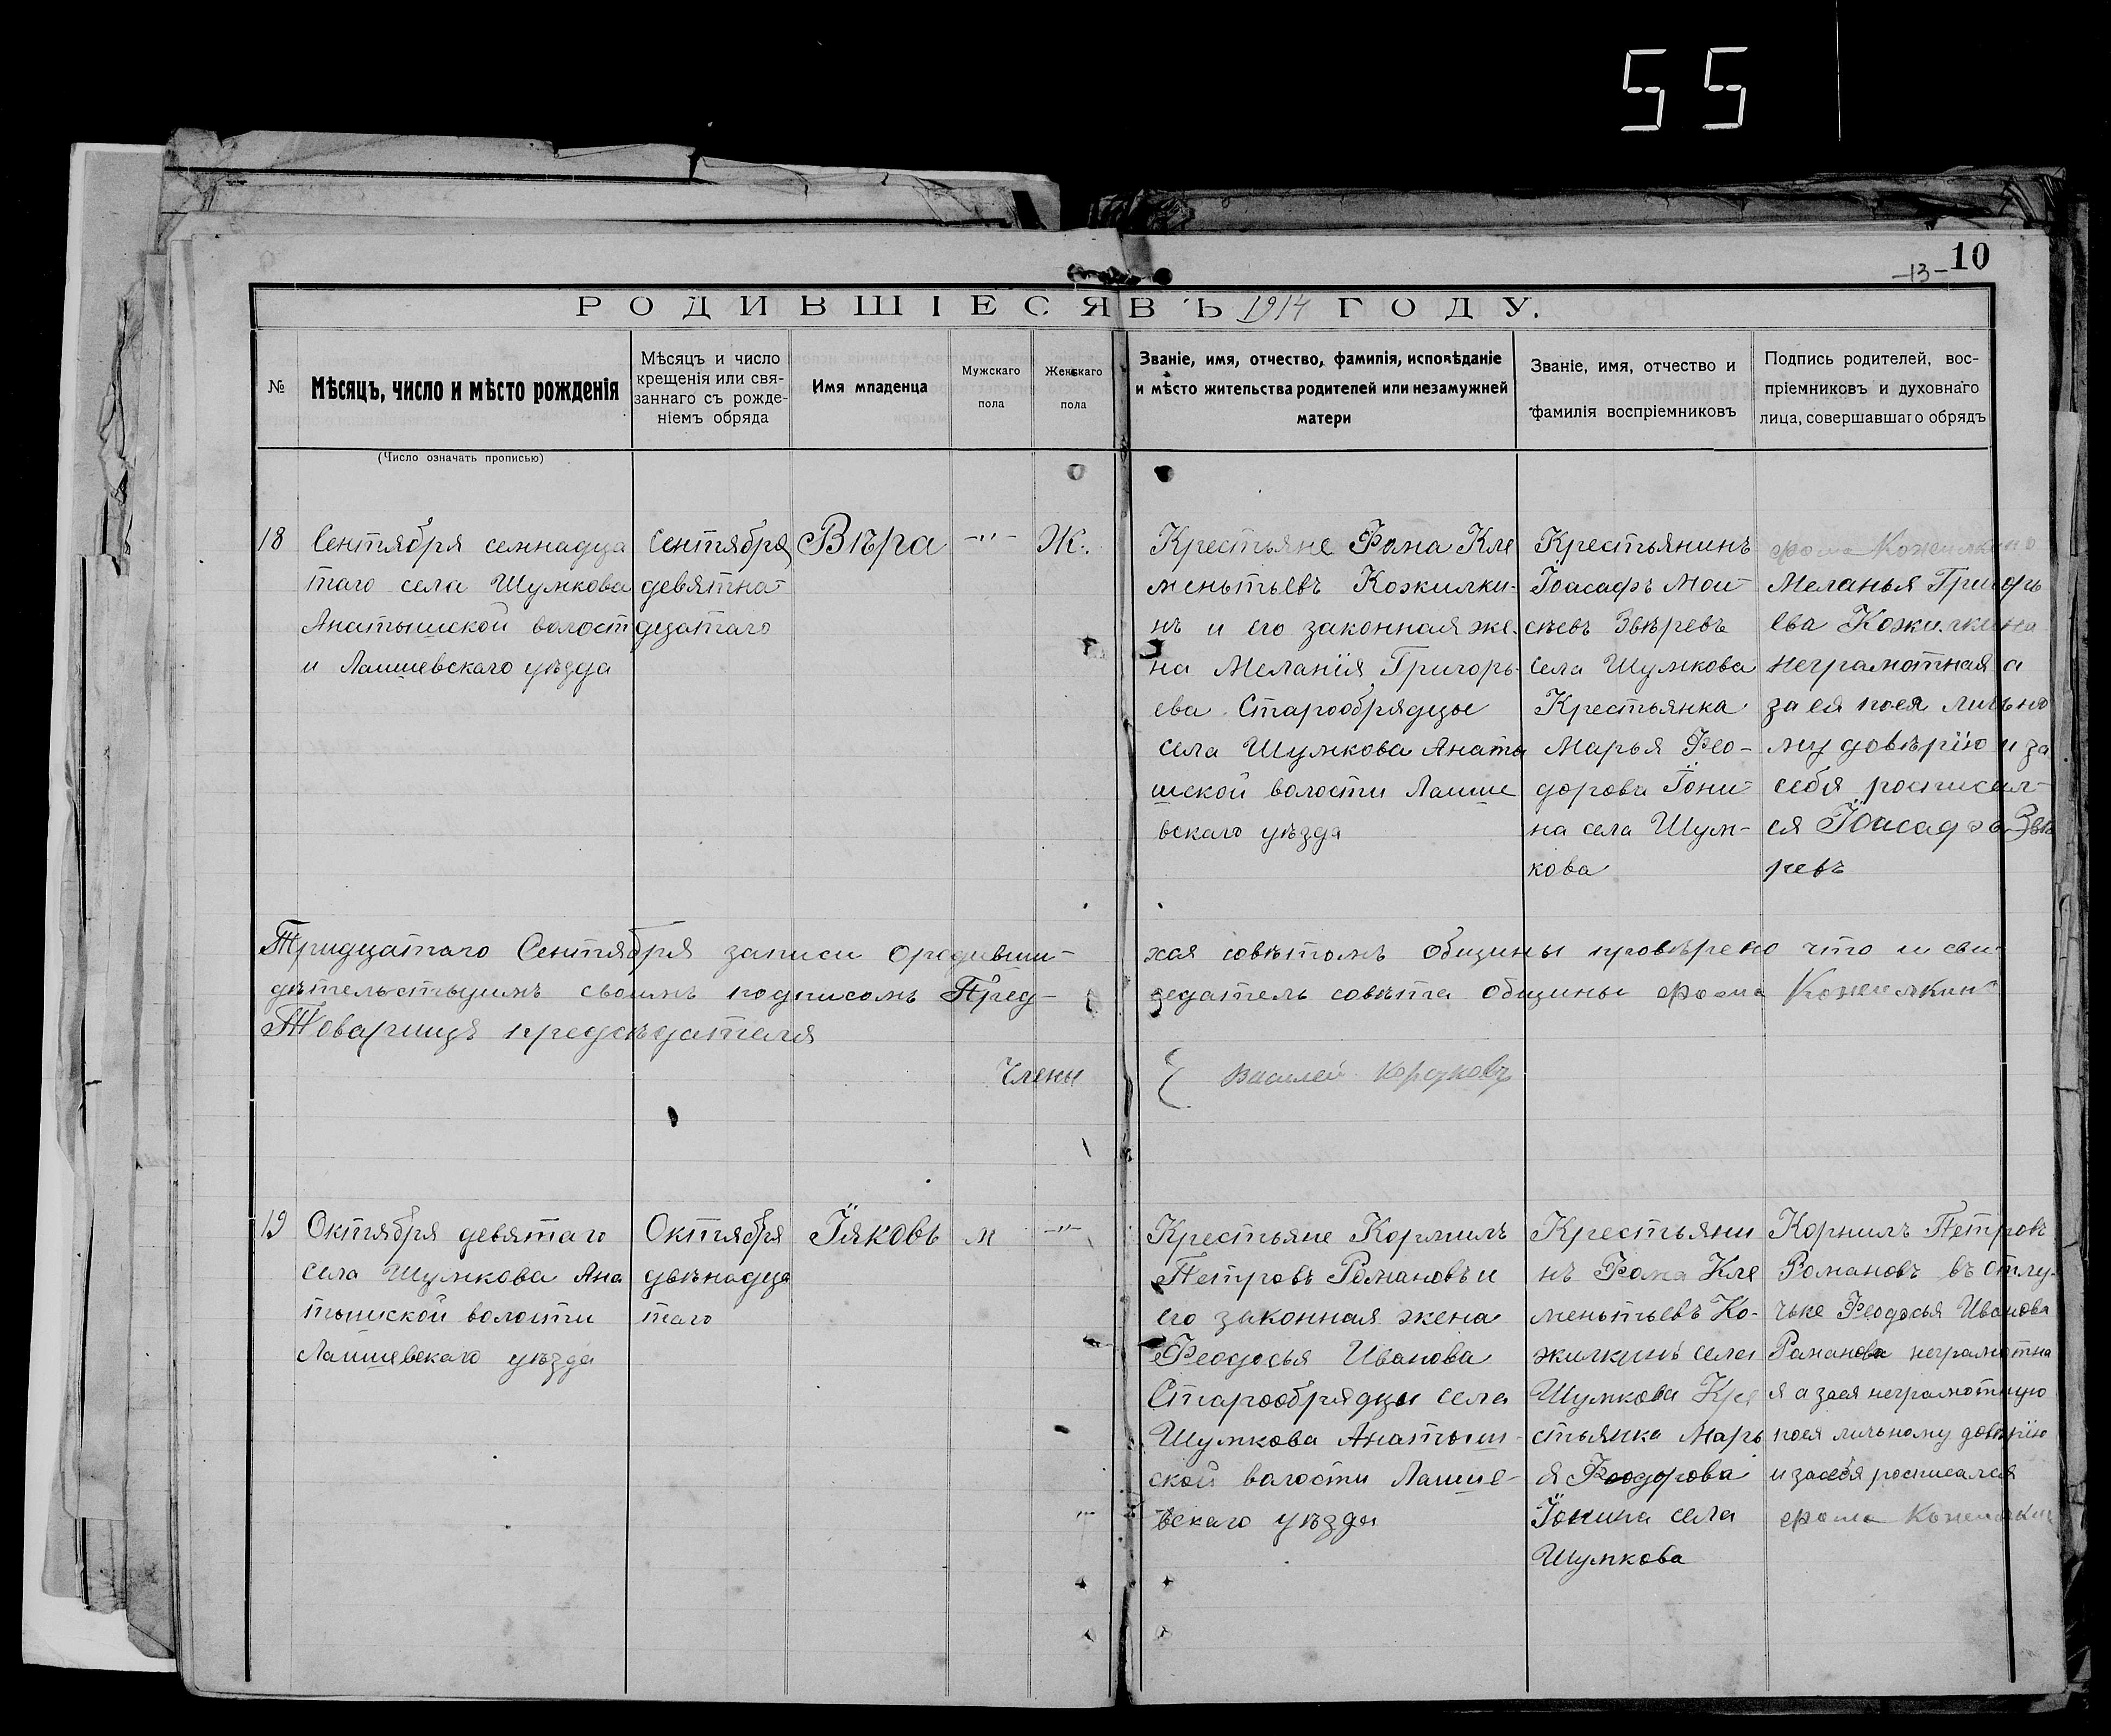 55
10
-13-
РОДИВШІЕСЯ ВЪ 1914 ГОДУ.
№
Мѣсяцъ, число и мѣсто рожденія
(Число означать прописью)
Мѣсяцъ и число
крещенія или свя-
заннаго съ рожде-
ніемъ обряда
Имя младенца
Мужскаго
пола
Женскаго
пола
Званіе, имя, отчество, фамилія, исповѣданіе
и мѣсто жительства родителей или незамужней
матери
Званіе, имя, отчество и
фамилія воспріемниковъ
Подпись родителей, вос-
пріемниковъ и духовнаго
лица, совершавшаго обрядъ
18
Сентября семнадца
таго села Шумкова
Анатышской волост
и Лаишевскаго уѣзда
Сентября
девятна-
дцатаго
Вѣра
-"-
Ж.
Крестьяне Фома Кле
меньтьевъ Кожилки-
нъ и его законная же-
на Меланія Григорь-
ева Старообрядцы
села Шумкова Анаты
шской волости Лаише
вскаго уѣзда
Крестьянинъ
Іоасафъ Мои-
сѣевъ Звѣревъ
села Шумкова
Крестьянка
Марья Фео-
дорова Іони-
на села Шум-
кова
Фома Кожилкинъ
Меланья Григорь
ева Кожилкина
неграмотная а
за ея по ея личьно
му довѣрію и за
себя росписал-
ся Іоасафъ Звѣ
ревъ
Тридцатаго Сентября записи о родивши-
хся совѣтомъ общины провѣрено что и сви-
дѣтельствуимъ своимъ подписомъ Пред-
седатель совѣта общины Фома Кожилкин
Товарищъ предсѣдателя
Члены
{ Василей
19
Октября девятаго
села Шумкова Ана
тышской волости
Лаишевскаго уѣзда
Октября
двѣнадца
таго
Іяковъ
м
-"-
Крестьяне Корнилъ
Петровъ Романовъ и
его законная жена
Феодосья Иванова
Старообрядцы села
Шумкова Анатыш-
ской волости Лаише-
вскаго уѣзда
Крестьяни
нъ Фома Кле
меньтьевъ Ко-
жилкинъ села
Шумкова Кре
стьянка Марь
я Феодорова
Іонина села
Шумкова
Корнилъ Петровъ
Романовъ въ отлу-
чьке Феодосья Иванова
Романова неграмотна
я а за ея неграмотную
по ея личьному довѣрію
и за себя росписался
Фома Кожилкин